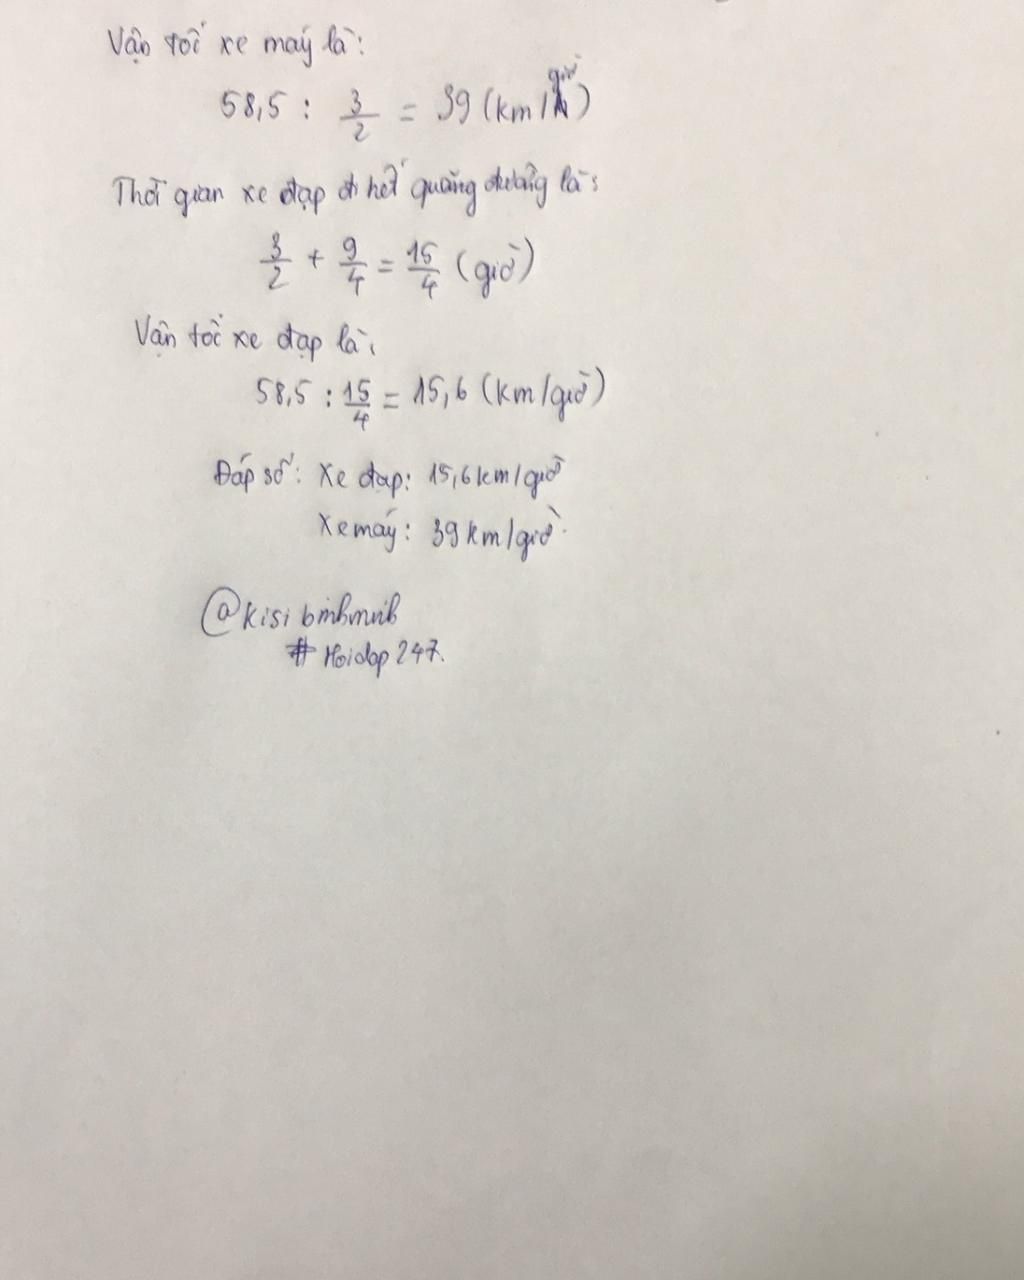 Vận tốc xe máy là:
58,5 : 3/2 = 39 (km/giờ)
Thời gian xe đạp đi hết quãng đường là:
3/2 + 9/4 = 15/4 (giờ)
Vận tốc xe đạp là:
58,5 : 15/4 = 15,6 (km/giờ)
Đáp số: Xe đạp: 15,6 km/giờ
Xe máy: 39 km/giờ.
@kisi
# Hoidap 247.